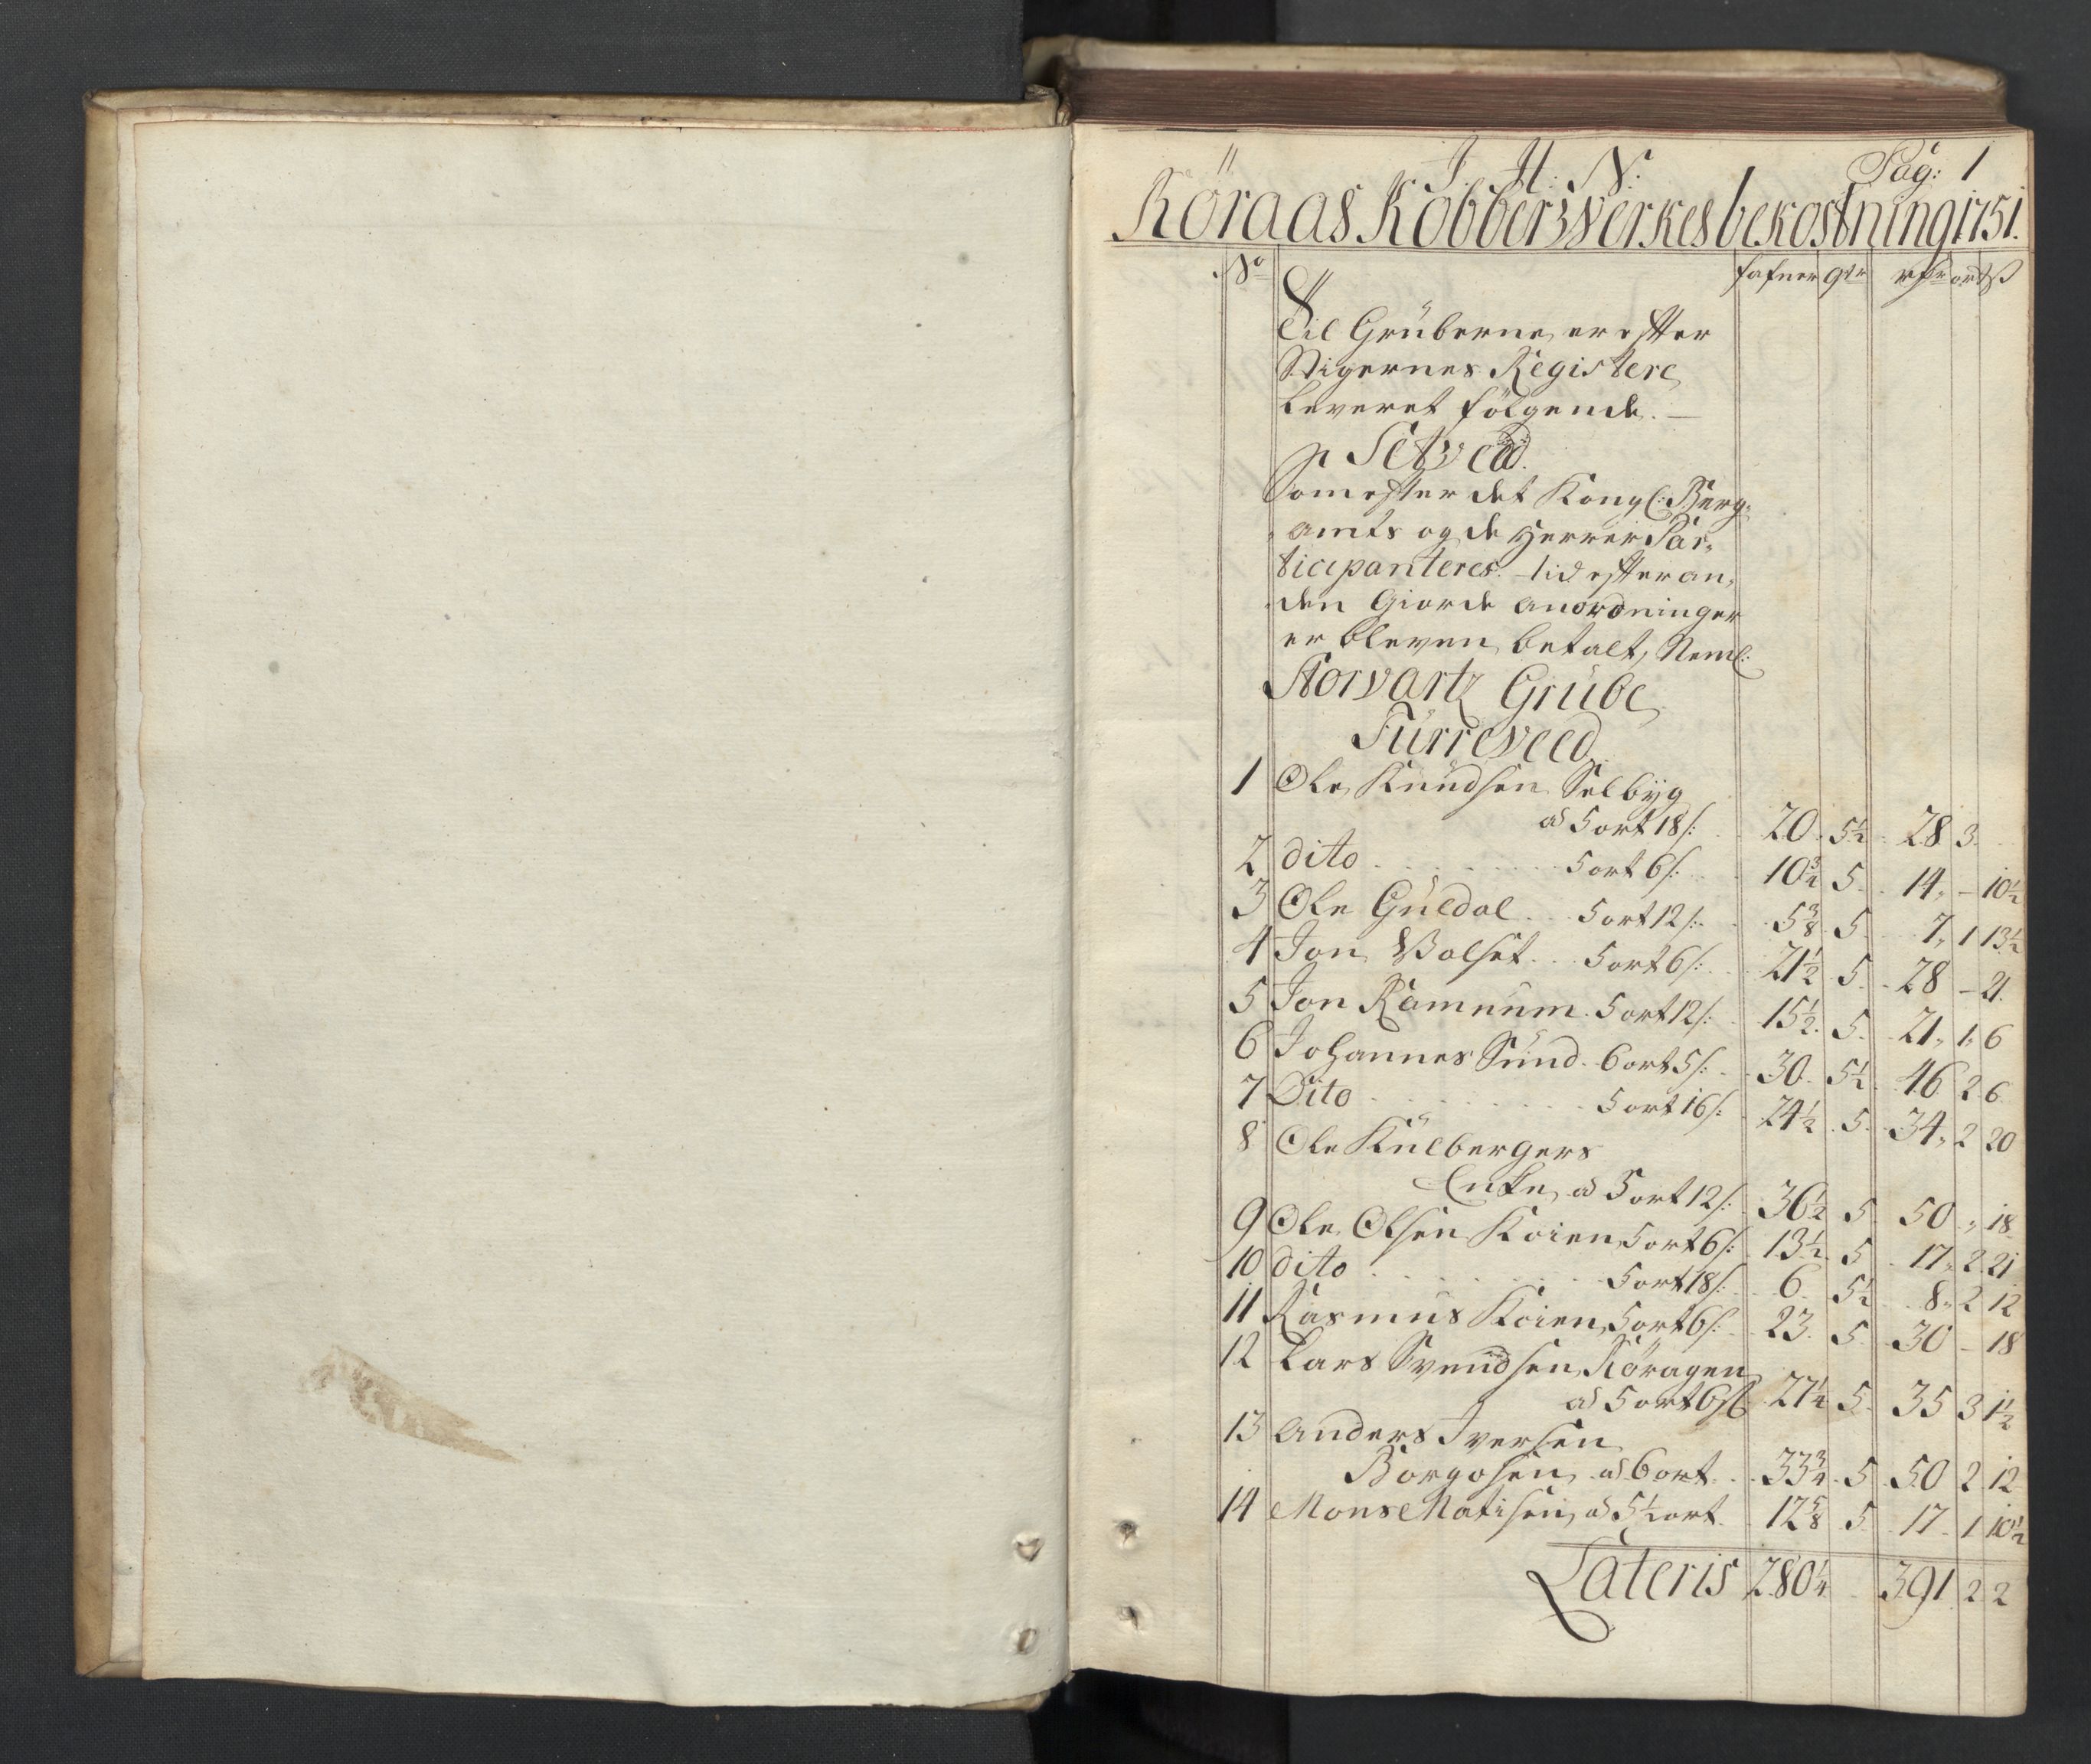 J. H: N: Pag: 1
Röraas Kobberverkes bekostning 1751.
No fafner qtr rdr ort ß
Til Gruberne er efter
Stigernes Registere
leveret følgende. —
Setveed.
Som efter det Kongl: Berg-
amts og de Herrer Par-
ticipanteres tid efter an-
den Giorde anordninger
er bleven betalt, Neml:
Storvartz Grube
Fürreveed
1 Ole Knudsen Selbÿg
a 5 ort 18 s: 20 5½ 28 3
2 dito 5 ort 6 s: 10¾ 5 14 - 10½
3 Ole Guldal 5 ort 12 s: 5⅜ 5 7 1 13½
4 Jon Volset 5 ort 6 s: 21½ 5 28 - 21
5 Jon Ramnum 5 ort 12 s: 15½ 5 21 1 6
6 Johannes Sund 6 ort 5 s: 30 5½ 46 2 6
7 Dito 5 ort 16 s: 24½ 5 34 2 20
8 Ole Külbergers
Enke, a 5 ort 12 s: 36½ 5 50 " 18
9 Ole Olsen Koien 5 ort 6 s: 13½ 5 17 2 21
10 dito 5 ort 18 s: 6 5½ 8 2 12
11 Rasmus Koien 5 ort 6 s: 23 5 30 - 18
12 Lars Svendsen Röragen
a 5 ort 6 s 27¼ 5 35 3 1½
13 Anders Iversen
Borgosen a 6 ort 33¾ 5 50 2 12
14 Mons Matisen, a 5½ ort 12⅝ 5 17 1 10½
Lateris 280¼ 391 2 2